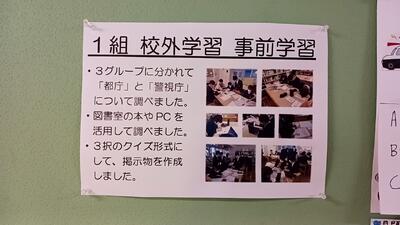 1組 校外学習 事前学習
・3グループに分かれて
「都庁」と「警視庁」
について調べました。
・図書室の本やPCを
活用して調べました。
・3択のクイズ形式に
して、掲示物を作成
しました。
A
B
C